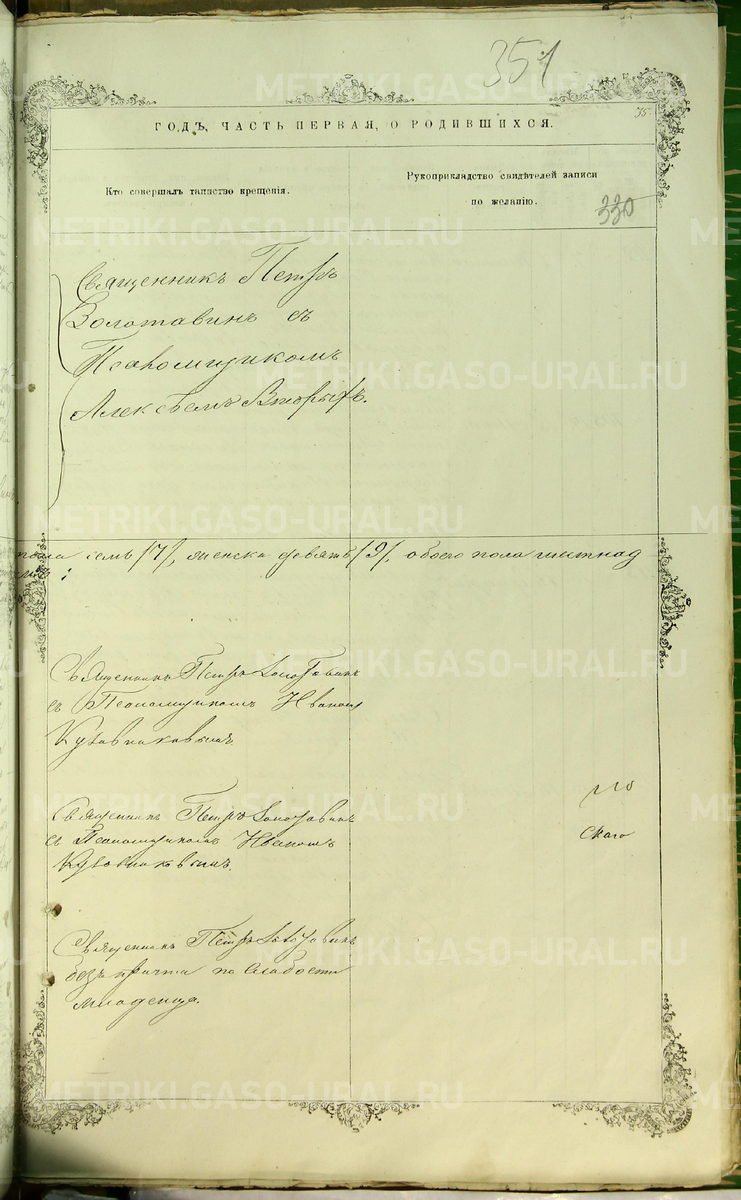 351
35
ГОДЪ, ЧАСТЬ ПЕРВАЯ, О РОДИВШИХСЯ.
Кто совершалъ таинство крещенія.
Рукоприкладство свидѣтелей записи
по желанію.
330
Священникъ Петръ
Золотавинъ съ
Псаломщикомъ
Алексѣемъ Вторыхъ.
пола семь /7/, женска девять /9/, обоего пола шестнад
Священникъ Петръ Золотавинъ
съ Псаломщикомъ Иваномъ
Кузовниковымъ
Священникъ Петръ Золотавинъ
съ Псаломщикомъ Иваномъ
Кузовниковымъ.
скаго
Священникъ Петръ Золотавинъ
безъ причта по слабости
младенца.
METRIKI.GASO-URAL.RU